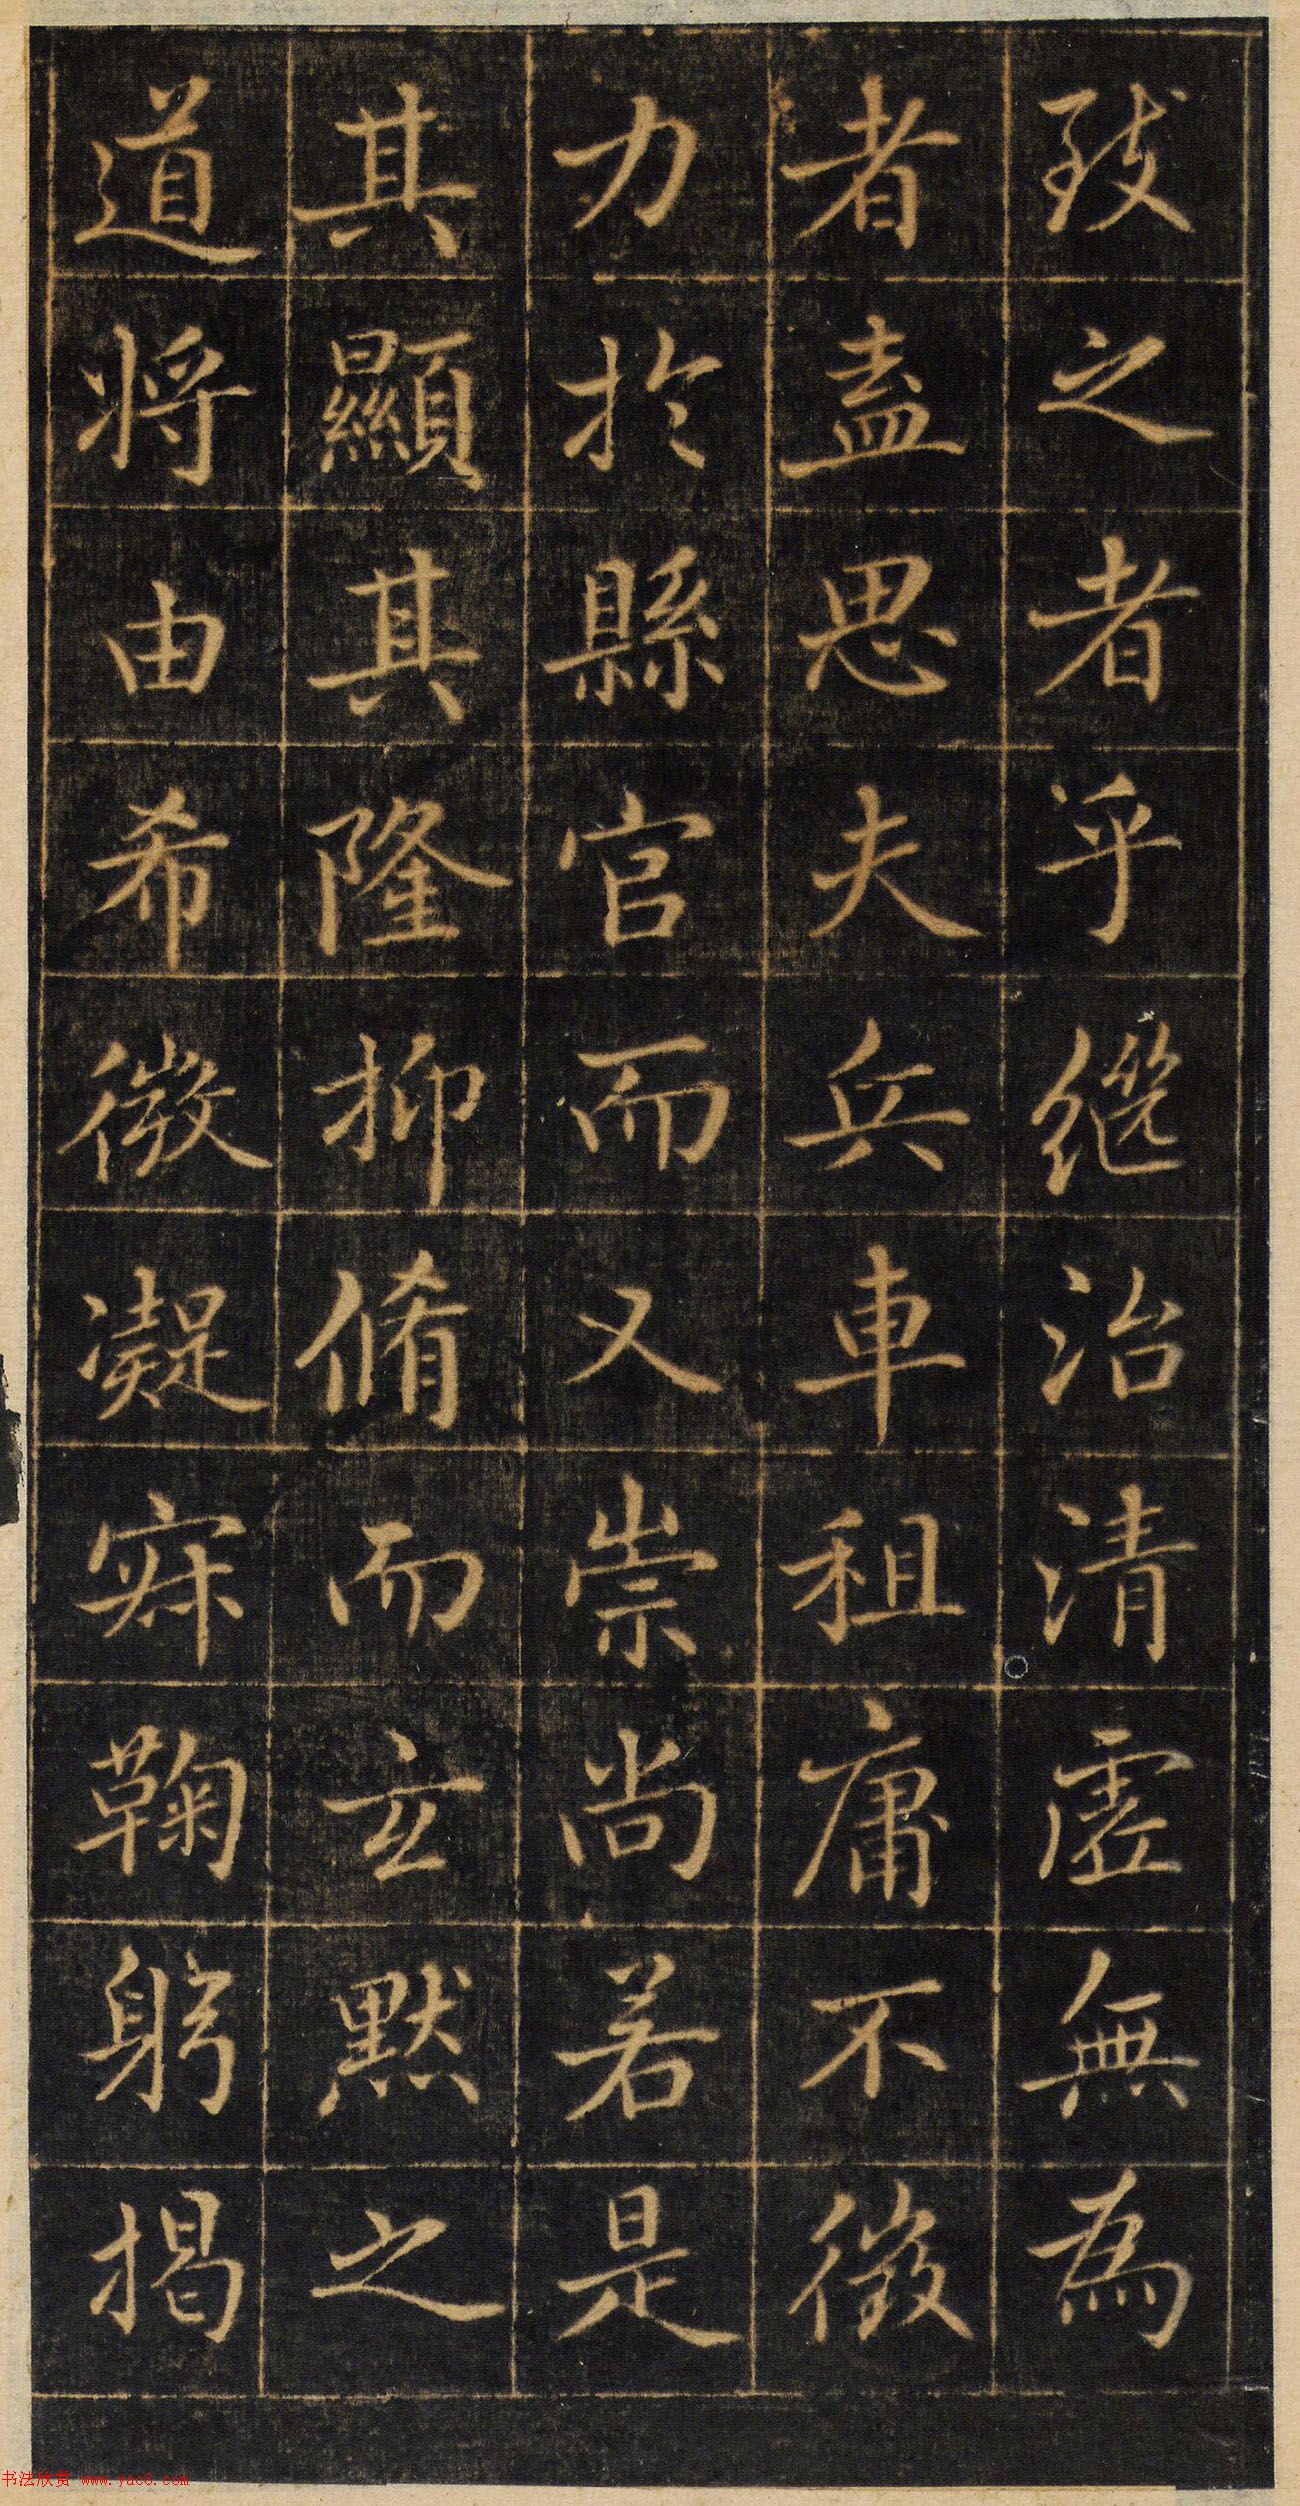 致之者乎繼治清虛無為
者盡思夫兵車租庸不徵
力於縣官而又崇尚若是
其顯其隆抑脩而玄默之
道將由希微凝寂鞠躬揭
书法欣赏 www.yac8.com